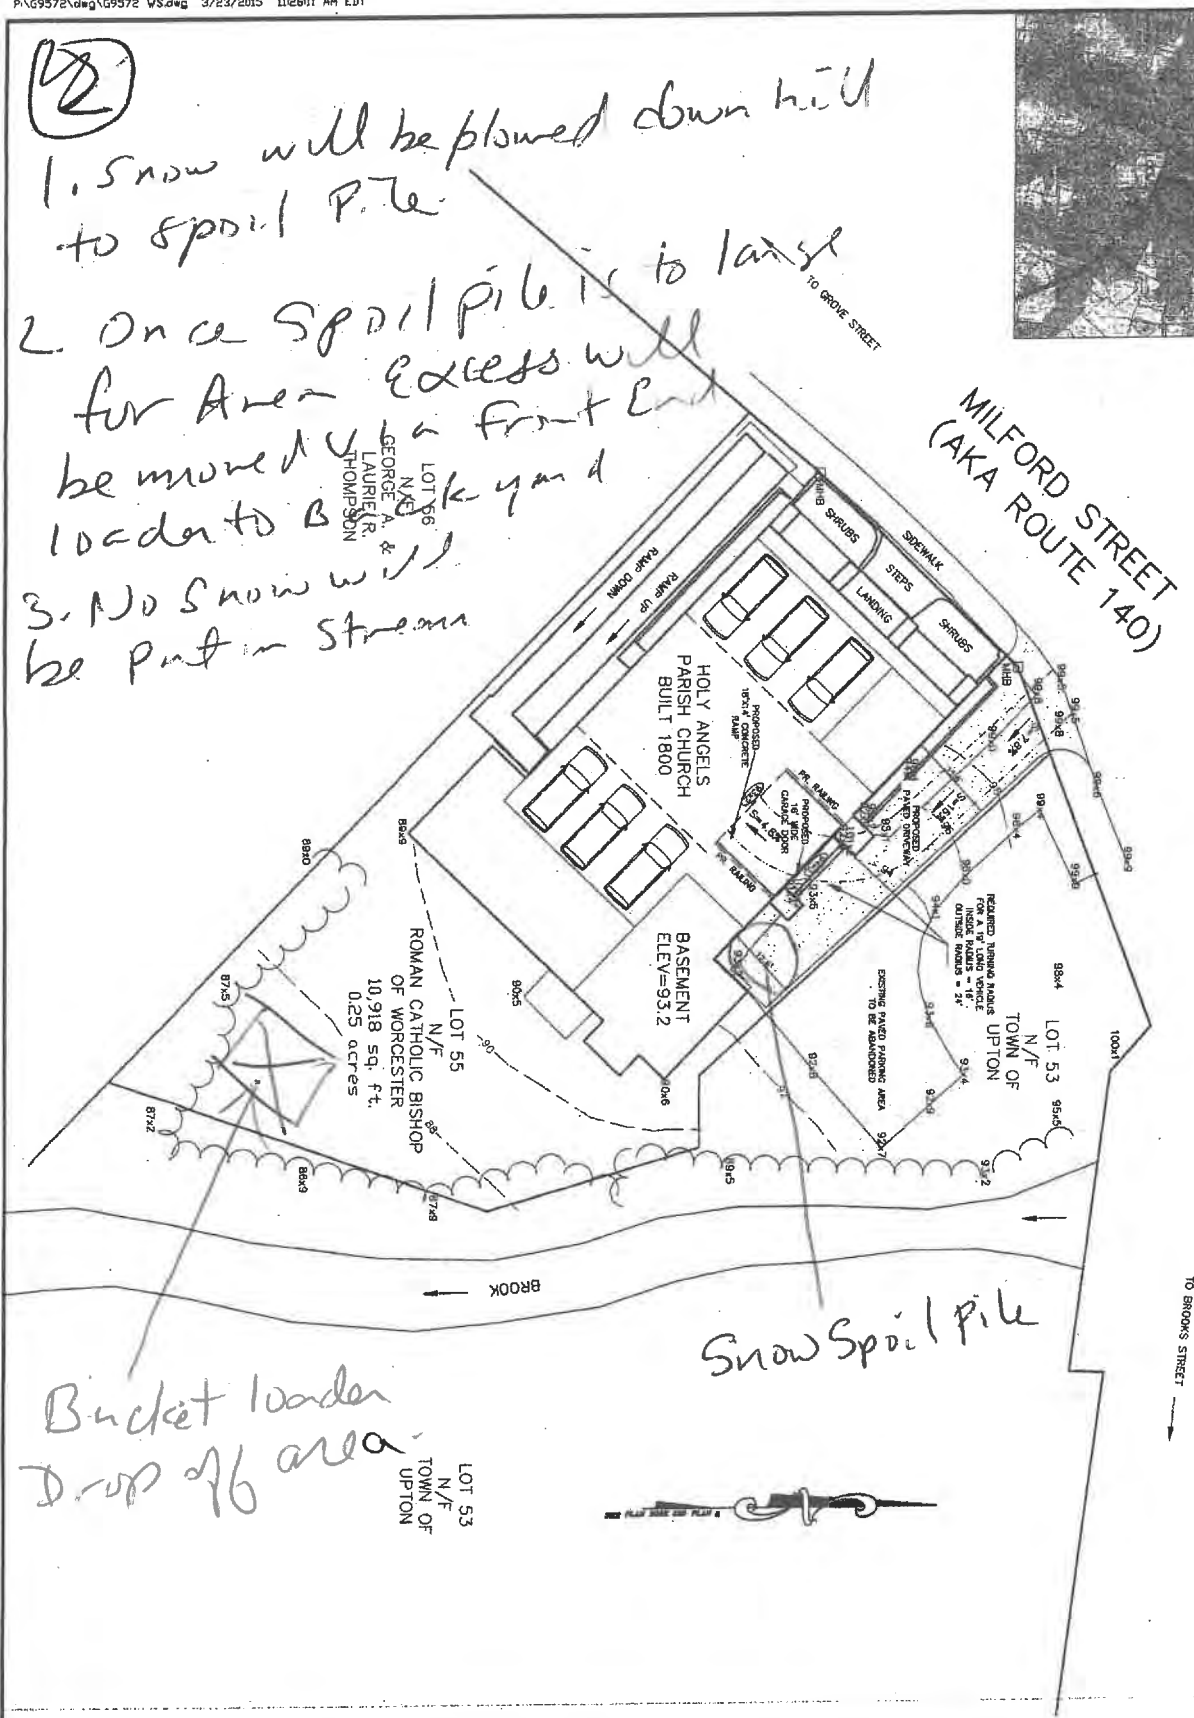 P:\G9572\dwg\G9572 WS.dwg 3/23/2015 11:26:11 AM EDT
1. Snow will be plowed down hill
to spoil Pile
2. Once Spoil pile is to large
for Area Excess will
be moved via front End
loader to Back yard
3. No Snow will
be Put in Stream
TO GROVE STREET
MILFORD STREET
(AKA ROUTE 140)
LOT 56
N/F
GEORGE A. &
LAURIE R.
THOMPSON
MHB
SHRUBS
SIDEWALK
STEPS
LANDING
SHRUBS
MHB
RAMP DOWN
RAMP UP
HOLY ANGELS
PARISH CHURCH
BUILT 1800
PROPOSED
18'X14' CONCRETE
RAMP
PR. RAILING
PROPOSED
16' WIDE
GARAGE DOOR
PR. RAILING
PROPOSED
PAVED DRIVEWAY
REQUIRED TURNING RADIUS
FOR A 19' LONG VEHICLE
INSIDE RADIUS = 16'
OUTSIDE RADIUS = 24'
EXISTING PAVED PARKING AREA
TO BE ABANDONED
BASEMENT
ELEV=93.2
LOT 53
N/F
TOWN OF
UPTON
LOT 55
N/F
ROMAN CATHOLIC BISHOP
OF WORCESTER
10,918 sq. ft.
0.25 acres
99x9
98x4
100x1
95x5
93x4
92x9
92x7
93x2
89x5
90x6
90x5
89x9
89x0
87x5
87x2
86x9
87x9
90
88
91
BROOK
TO BROOKS STREET
Snow Spoil pile
Bucket loader
Drop off area
LOT 53
N/F
TOWN OF
UPTON